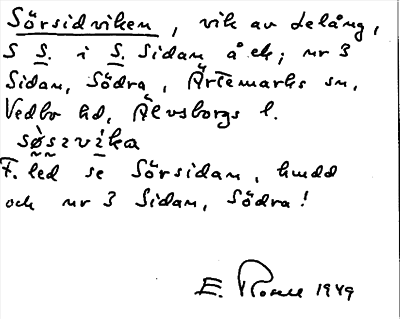 Sörsidviken, vik av Lelång,
S S. i S. Sidan å ek; nr 3
Sidan, Södra, Ärtemarks sn,
Vedbo hd, Älvsborgs l.
sø̀sᴣvi̇ka
F. led se Sörsidan, hmdd
och nr 3 Sidan, Södra!
E. 1949